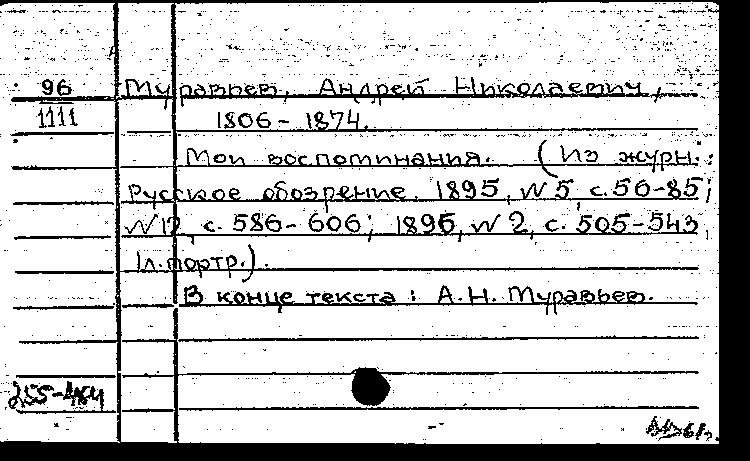 96 Муравьев, Андрей Николаевич,
1111 1806 – 1874.
Мои воспоминания. (Из журн.:
Русское обозрение. 1895, N 5, с. 56-85;
N 12, с. 586-606; 1896, N 2, с. 505-543,
1л. портр.).
В конце текста: А.Н. Муравьев.
255-484